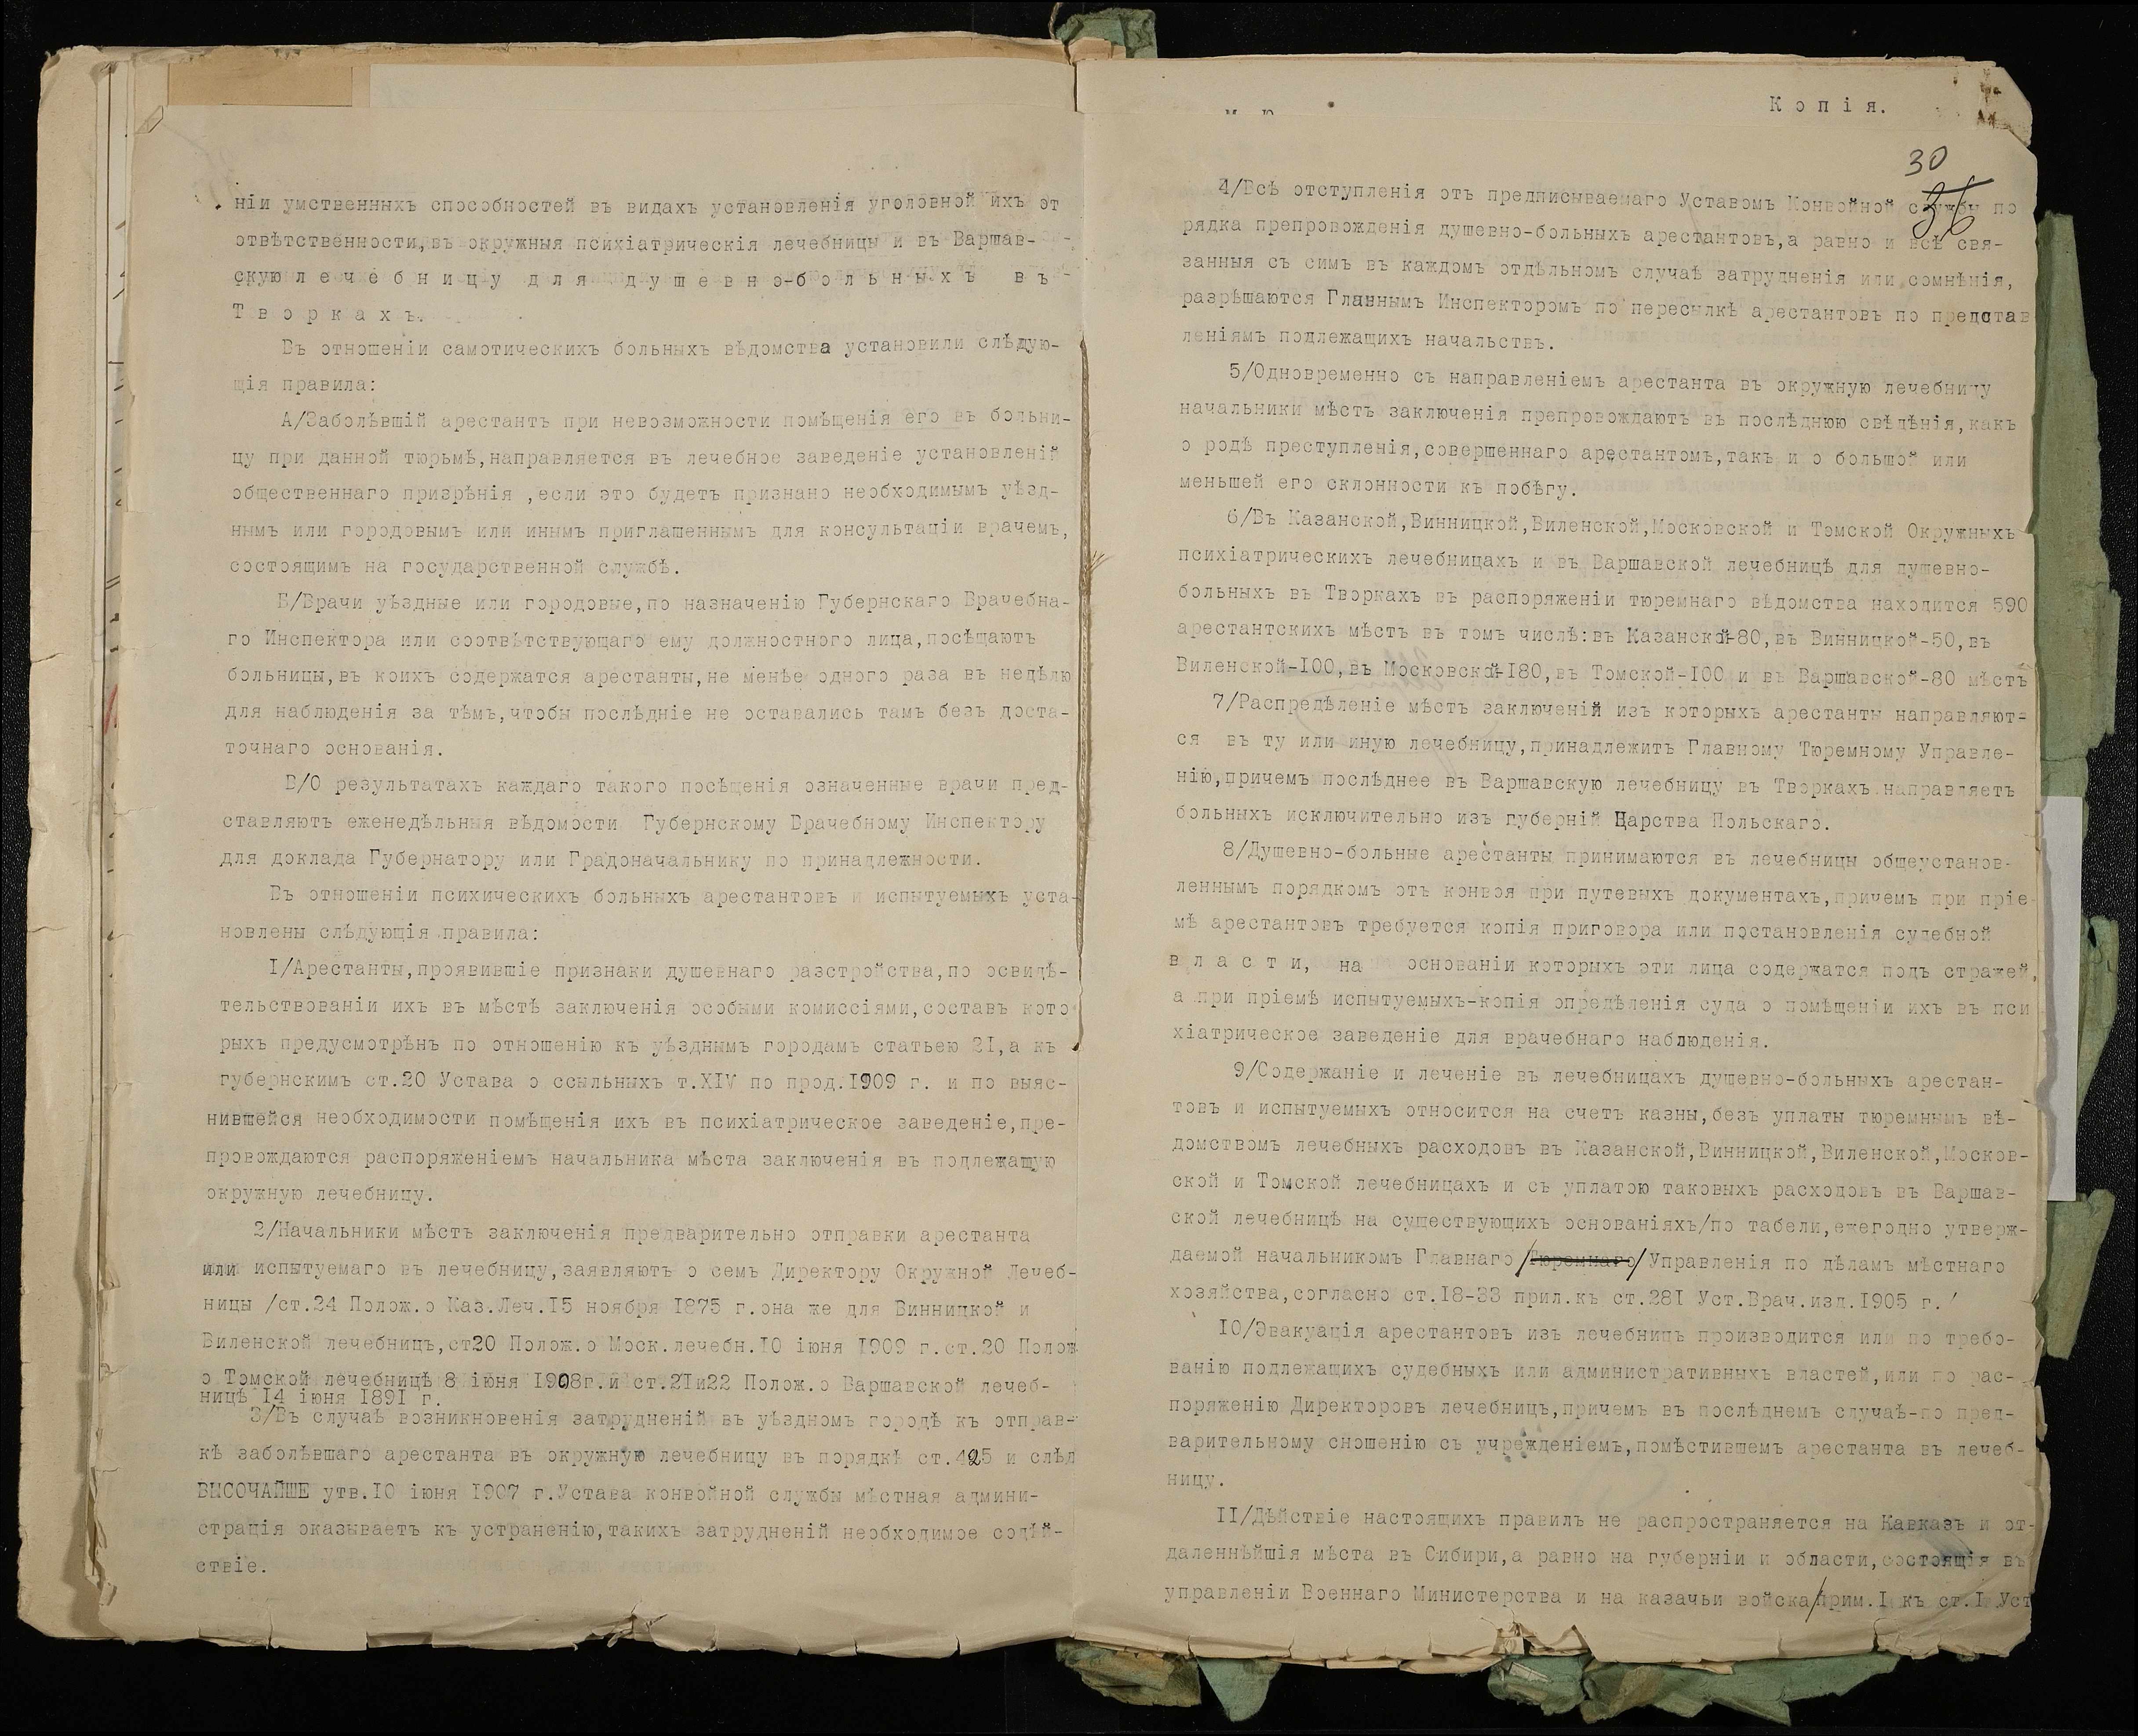 ніи умственныхъ способностей въ видахъ установленія уголовной ихъ от
отвѣтственности,въ окружныя психіатрическія лечебницы и въ Варшав-
скую лечебницу для душевно-больныхъ въ
Творкахъ.
Въ отношеніи самотическихъ больныхъ вѣдомства установили слѣдую-
щія правила:
А/Заболѣвшій арестантъ при невозможности помѣщенія его въ больни-
цу при данной тюрьмѣ,направляется въ лечебное заведеніе установленій
общественнаго призрѣнія ,если это будетъ признано необходимымъ уѣзд-
нымъ или городовымъ или инымъ приглашеннымъ для консультаціи врачемъ,
состоящимъ на государственной службѣ.
Б/Врачи уѣздные или городовые,по назначенію Губернскаго Врачебна-
го Инспектора или соотвѣтствующаго ему должностного лица,посѣщаютъ
больницы,въ коихъ содержатся арестанты,не менѣе одного раза въ недѣлю
для наблюденія за тѣмъ,чтобы послѣдніе не оставались тамъ безъ доста-
точнаго основанія.
В/О результатахъ каждаго такого посѣщенія означенные врачи пред-
ставляютъ еженедѣльныя вѣдомости Губернскому Врачебному Инспектору
для доклада Губернатору или Градоначальнику по принадлежности.
Въ отношеніи психическихъ больныхъ арестантовъ и испытуемыхъ уста-
новлены слѣдующія правила:
I/Арестанты,проявившіе признаки душевнаго разстройства,по освидѣ-
тельствованіи ихъ въ мѣстѣ заключенія особыми комиссіями,составъ кото
рыхъ предусмотрѣнъ по отношенію къ уѣзднымъ городамъ статьею 2I,а къ
губернскимъ ст.20 Устава о ссыльныхъ т.XIV по прод.I909 г. и по выяс-
нившейся необходимости помѣщенія ихъ въ психіатрическое заведеніе,пре-
провождаются распоряженіемъ начальника мѣста заключенія въ подлежащую
окружную лечебницу.
2/Начальники мѣстъ заключенія предварительно отправки арестанта
или испытуемаго въ лечебницу,заявляютъ о семъ Директору Окружной Лечеб-
ницы /ст.24 Полож.о Каз.Леч.I5 ноября I875 г.она же для Винницкой и
Виленской лечебницъ,ст20 Полож.о Моск.лечебн.I0 іюня I909 г.ст.20 Полож
о Томской лечебницѣ 8 іюня I908г.и ст.2Iи22 Полож.о Варшавской лечеб-
ницѣ I4 іюня I89I г.
3/Въ случаѣ возникновенія затрудненій въ уѣздномъ городѣ къ отправ-
кѣ заболѣвшаго арестанта въ окружную лечебницу въ порядкѣ ст.425 и слѣд
ВЫСОЧАЙШЕ утв.I0 іюня I907 г.Устава конвойной службы мѣстная админи-
страція оказываетъ къ устраненію,такихъ затрудненій необходимое содѣй-
ствіе.
Копія.
30
36
4/Всѣ отступленія отъ предписываемаго Уставомъ Конвойной службы по
рядка препровожденія душевно-больныхъ арестантовъ,а равно и всѣ свя-
занныя съ симъ въ каждомъ отдѣльномъ случаѣ затрудненія или сомнѣнія,
разрѣшаются Главнымъ Инспекторомъ по пересылкѣ арестантовъ по представ
леніямъ подлежащихъ начальствъ.
5/Одновременно съ направленіемъ арестанта въ окружную лечебницу
начальники мѣстъ заключенія препровождаютъ въ послѣднюю свѣдѣнія,какъ
о родѣ преступленія,совершеннаго арестантомъ,такъ и о большой или
меньшей его склонности къ побѣгу.
6/Въ Казанской,Винницкой,Виленской,Московской и Томской Окружныхъ
психіатрическихъ лечебницахъ и въ Варшавской лечебницѣ для душевно-
больныхъ въ Творкахъ въ распоряженіи тюремнаго вѣдомства находится 590
арестантскихъ мѣстъ въ томъ числѣ:въ Казанской-80,въ Винницкой-50,въ
Виленской-I00,въ Московской-I80,въ Томской-I00 и въ Варшавской-80 мѣстъ
7/Распредѣленіе мѣстъ заключеній изъ которыхъ арестанты направляют=
ся въ ту или иную лечебницу,принадлежитъ Главному Тюремному Управле-
нію,причемъ послѣднее въ Варшавскую лечебницу въ Творкахъ направляетъ
больныхъ исключительно изъ губерній Царства Польскаго.
8/Душевно-больные арестанты принимаются въ лечебницы общеустанов-
леннымъ порядкомъ отъ конвоя при путевыхъ документахъ,причемъ при пріе
мѣ арестантовъ требуется копія приговора или постановленія судебной
власти, на основаніи которыхъ эти лица содержатся подъ стражей,
а при пріемѣ испытуемыхъ-копія опредѣленія суда о помѣщеніи ихъ въ пси
хіатрическое заведеніе для врачебнаго наблюденія.
9/Содержаніе и леченіе въ лечебницахъ душевно-больныхъ арестан-
товъ и испытуемыхъ относится на счетъ казны,безъ уплаты тюремнымъ вѣ-
домствомъ лечебныхъ расходовъ въ Казанской,Винницкой,Виленской,Москов-
ской и Томской лечебницахъ и съ уплатою таковыхъ расходовъ въ Варшав-
ской лечебницѣ на существующихъ основаніяхъ/по табели,ежегодно утверж-
даемой начальникомъ Главнаго /Тюремнаго/ Управленія по дѣламъ мѣстнаго
хозяйства,согласно ст.I8-33 прил.къ ст.28I Уст.Врач.изд.I905 г.
I0/Эвакуація арестантовъ изъ лечебницъ производится или по требо-
ванію подлежащихъ судебныхъ или административныхъ властей,или по рас-
поряженію Директоровъ лечебницъ,причемъ въ послѣднемъ случаѣ-по пред-
варительному сношенію съ учрежденіемъ,помѣстившемъ арестанта въ лечеб-
ницу.
II/Дѣйствіе настоящихъ правилъ не распространяется на Кавказъ и от-
даленнѣйшія мѣста въ Сибири,а равно на губерніи и области,состоящія въ
управленіи Военнаго Министерства и на казачьи войска/прим.I къ ст.I Уст